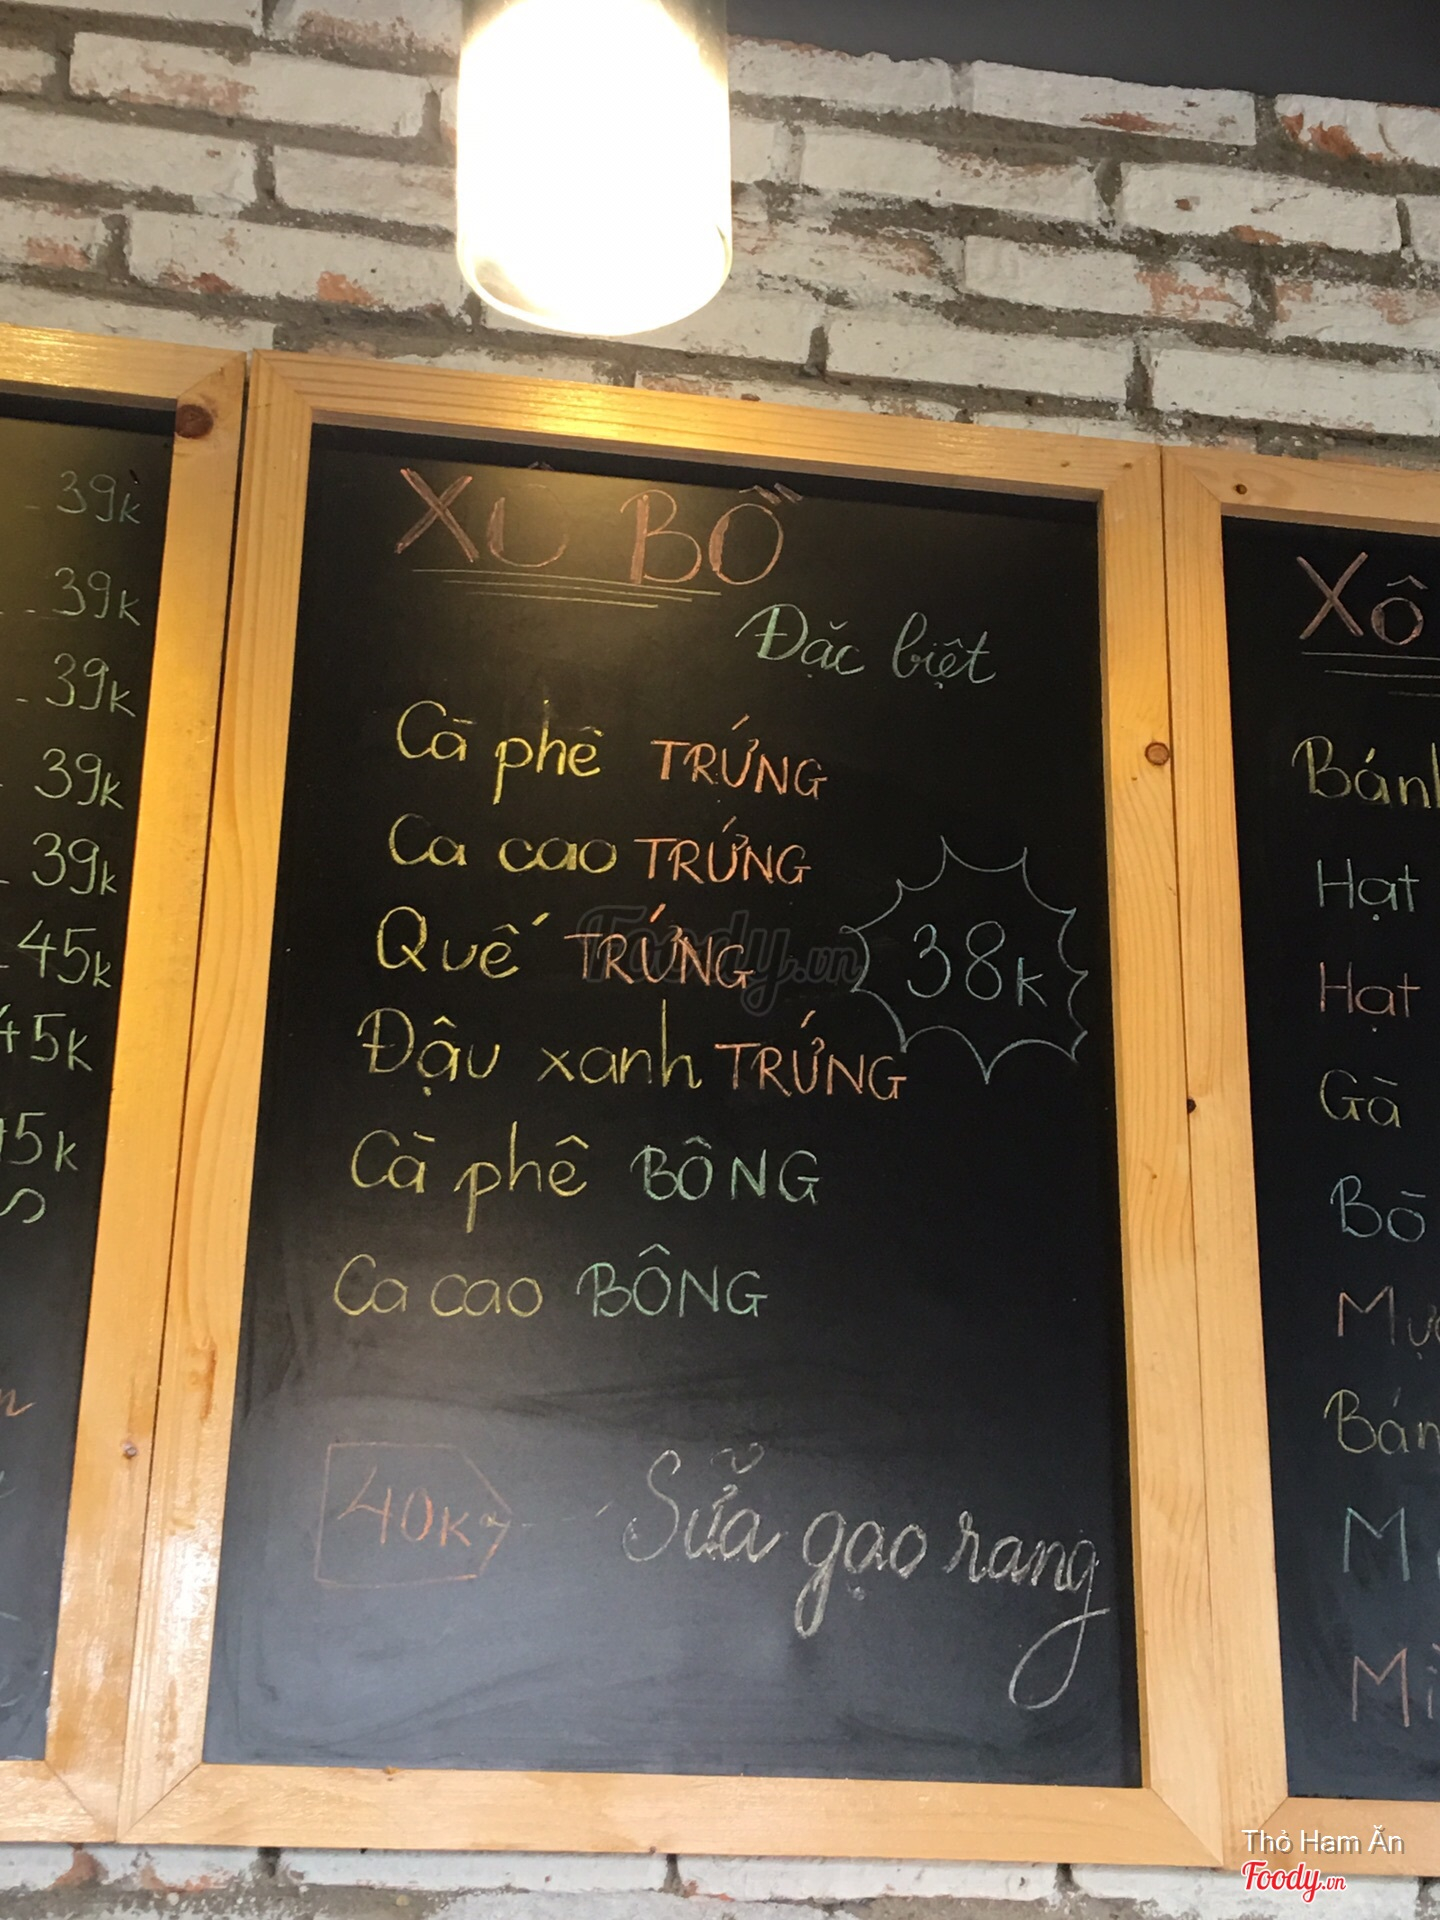 39k
39k
39k
39k
39k
45k
45k
45k
XÔ BỒ
Đặc biệt
Cà phê TRỨNG
Ca cao TRỨNG
Quế TRỨNG
38k
Đậu xanh TRỨNG
Cà phê BÔNG
Ca cao BÔNG
40k
Sữa gạo rang
Xô
Bánh
Hạt
Hạt
Gà
Bò
Foody.vn
Thỏ Ham Ăn
Foody.vn